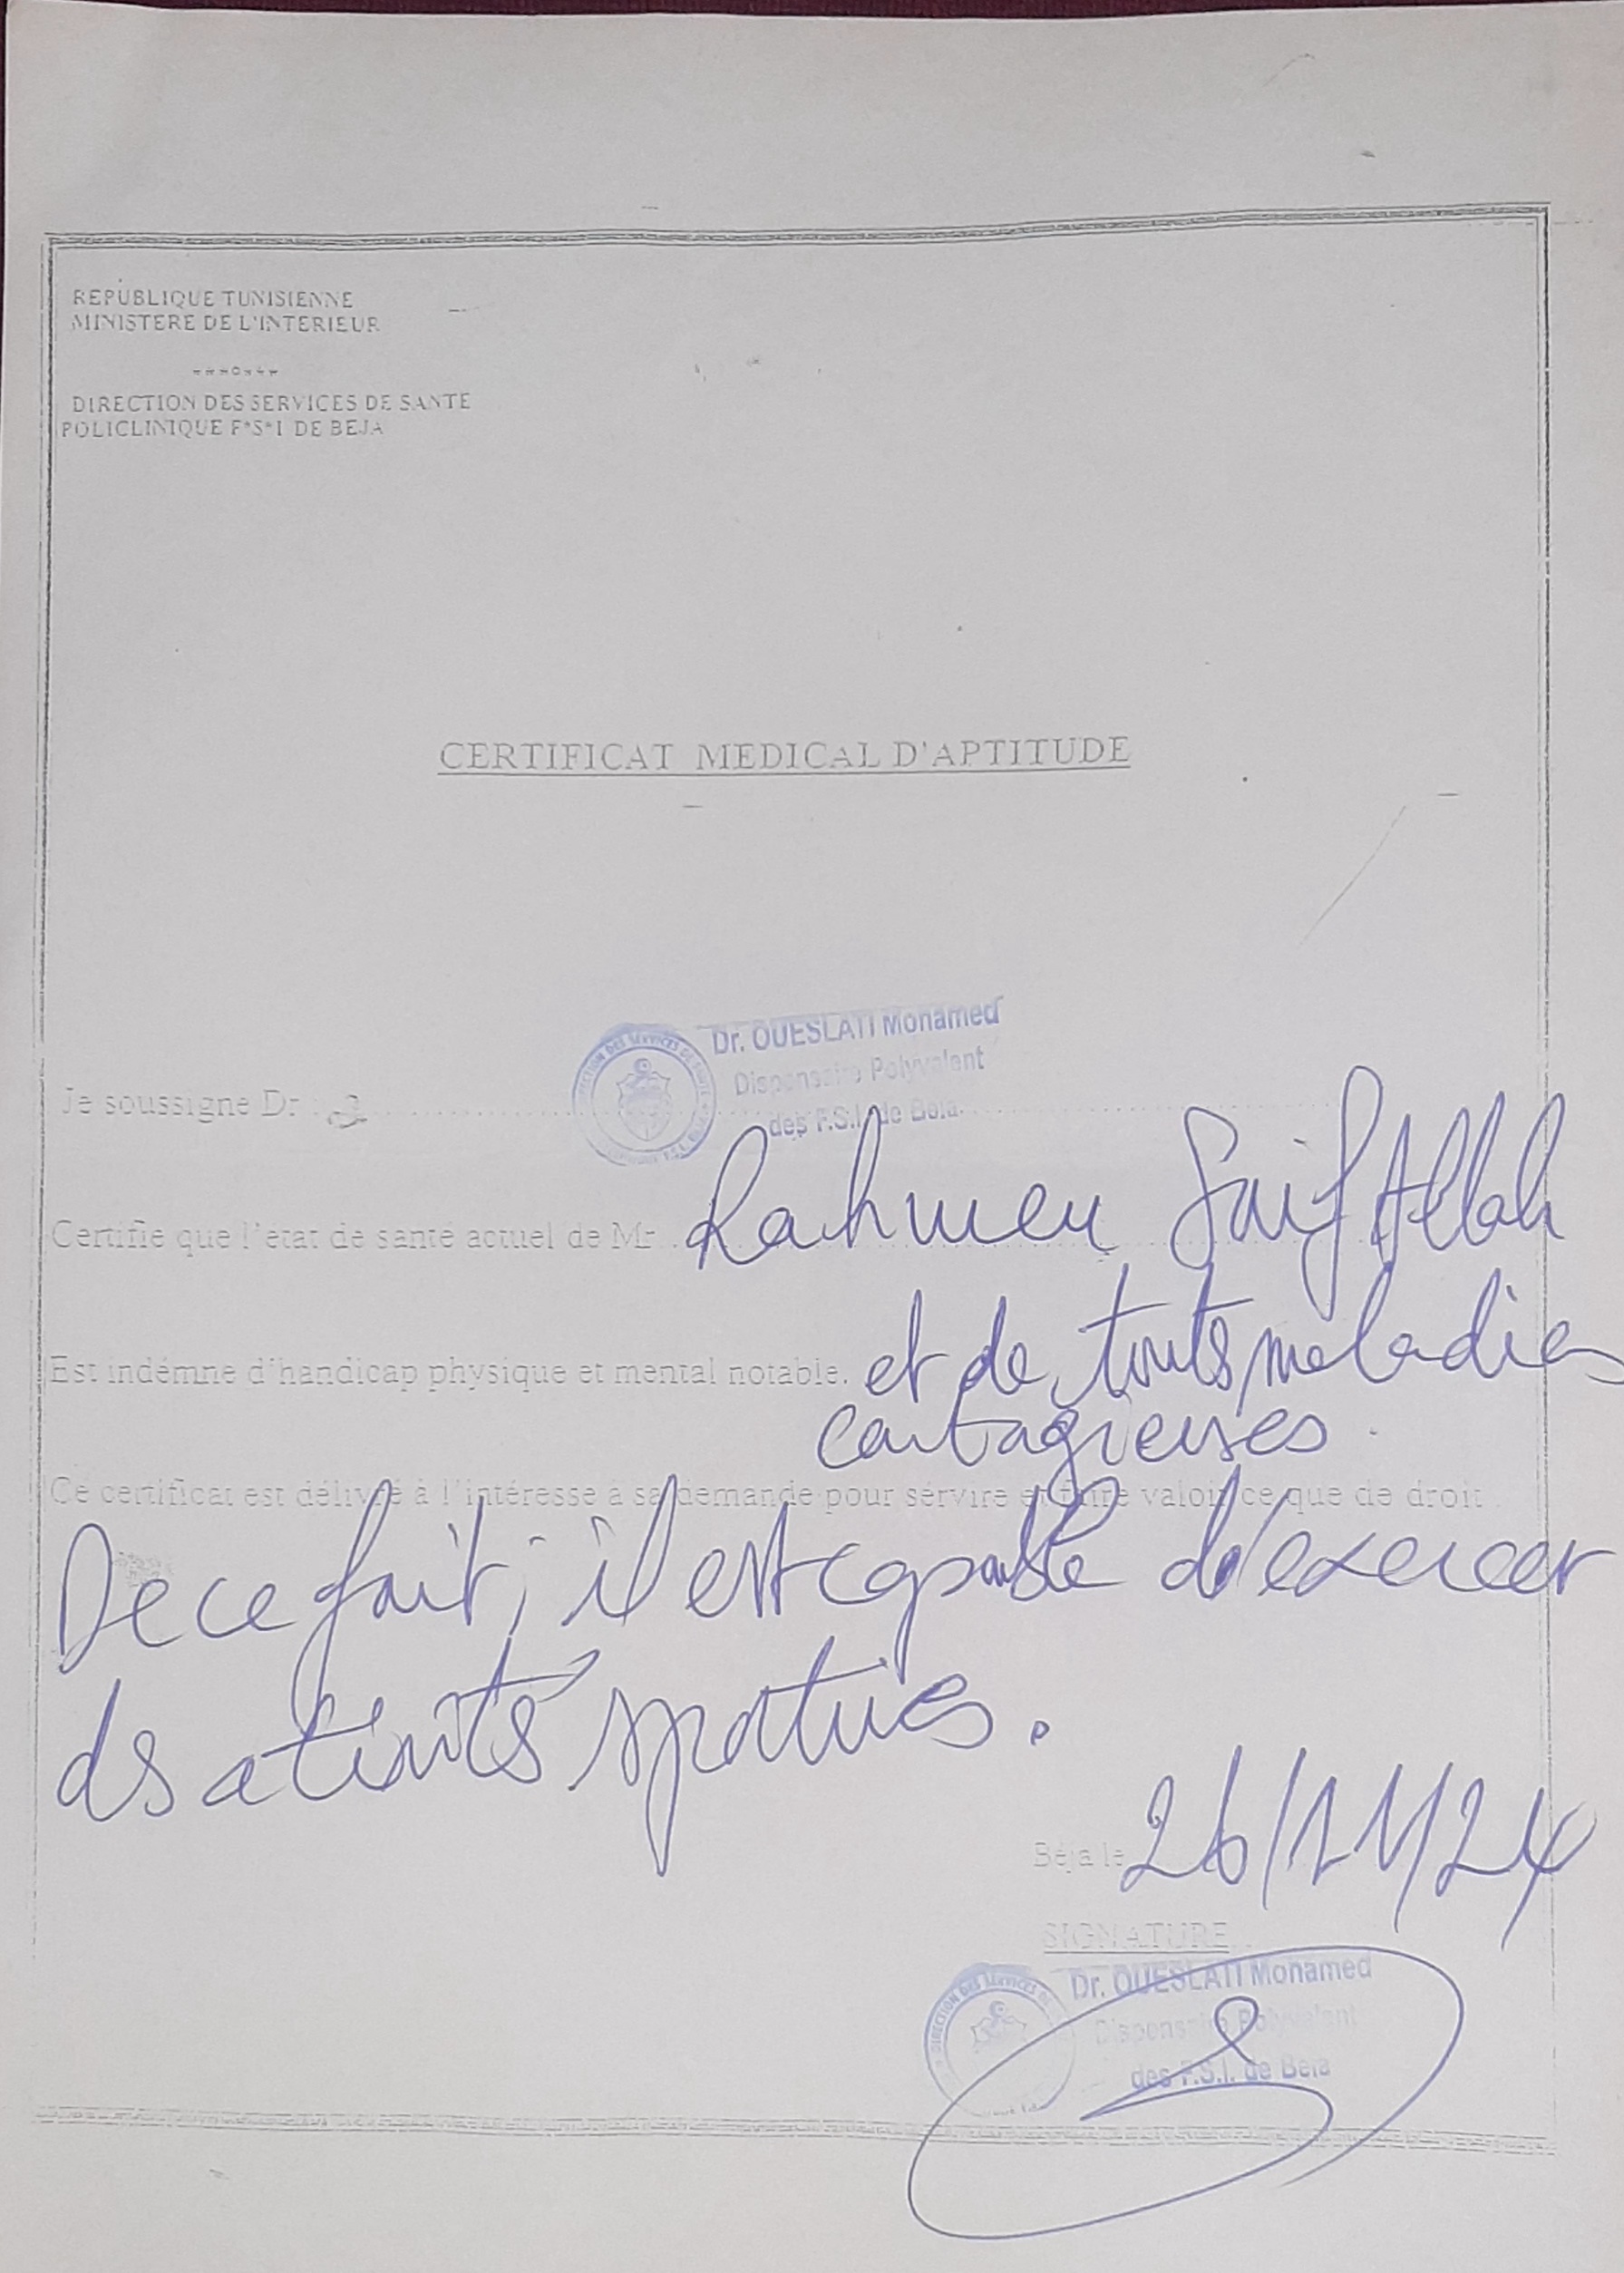 REPUBLIQUE TUNISIENNE
MINISTERE DE L'INTERIEUR
DIRECTION DES SERVICES DE SANTE
POLICLINIQUE F*S*I DE BEJA
CERTIFICAT MEDICAL D'APTITUDE
Dr. OUESLATI Mohamed
Dispensaire Polyvalent
des F.S.I. de Beja
Je soussigne Dr :
Certifie que l'etat de santé actuel de Mr Rahmeni Saif Allah
Est indémne d'handicap physique et mental notable. et de touts maladies
contagieuses.
Ce certificat est délivré à l'intéresse à sa demande pour servire et faire valoir ce que de droit
De ce fait, il est capable d'exercer
des activités sportives.
Béja le 26/11/24
SIGNATURE
Dr. OUESLATI Mohamed
Dispensaire Polyvalent
des F.S.I. de Beja